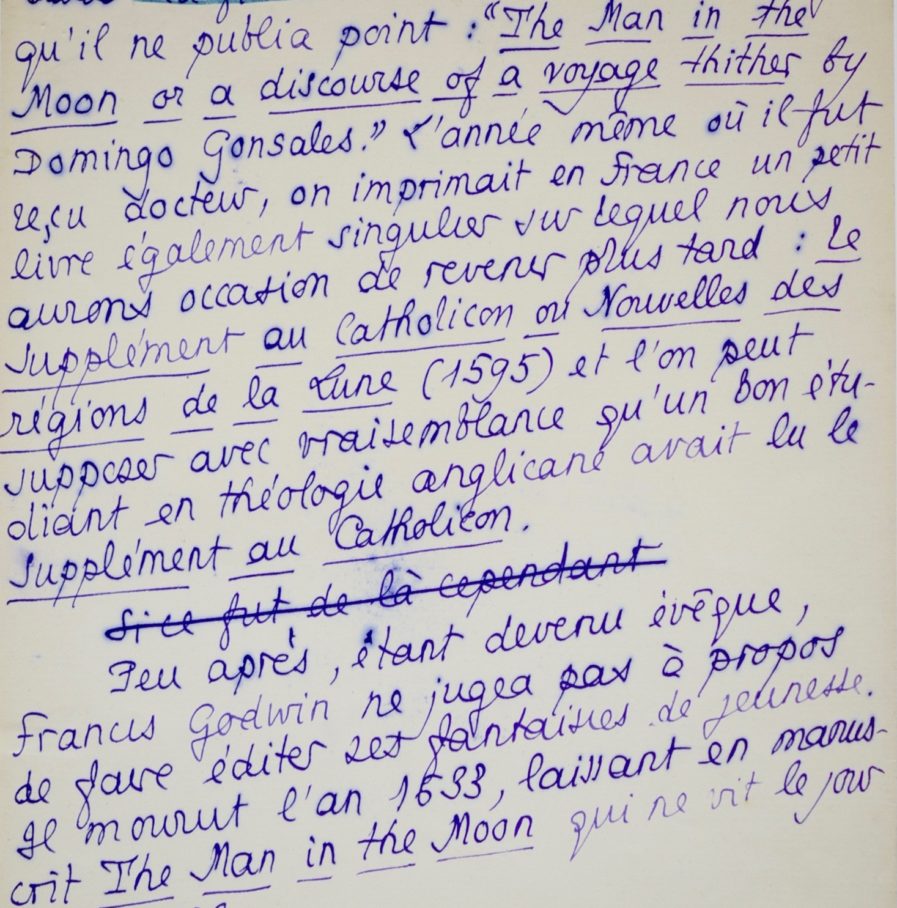 qu'il ne publia point : "The Man in the
Moon or a discourse of a voyage thither by
Domingo Gonsales." L'année même où il fut
reçu docteur, on imprimait en France un petit
livre également singulier sur lequel nous
aurons occasion de revenir plus tard : Le
Supplément au Catholicon ou Nouvelles des
régions de la Lune (1595) et l'on peut
supposer avec vraisemblance qu'un bon étu-
diant en théologie anglicane avait lu le
Supplément au Catholicon.
Si ce fut de là cependant
Peu après, étant devenu évêque,
Francis Godwin ne jugea pas à propos
de faire éditer ses fantaisies de jeunesse.
Il mourut l'an 1633, laissant en manus-
crit The Man in the Moon qui ne vit le jour